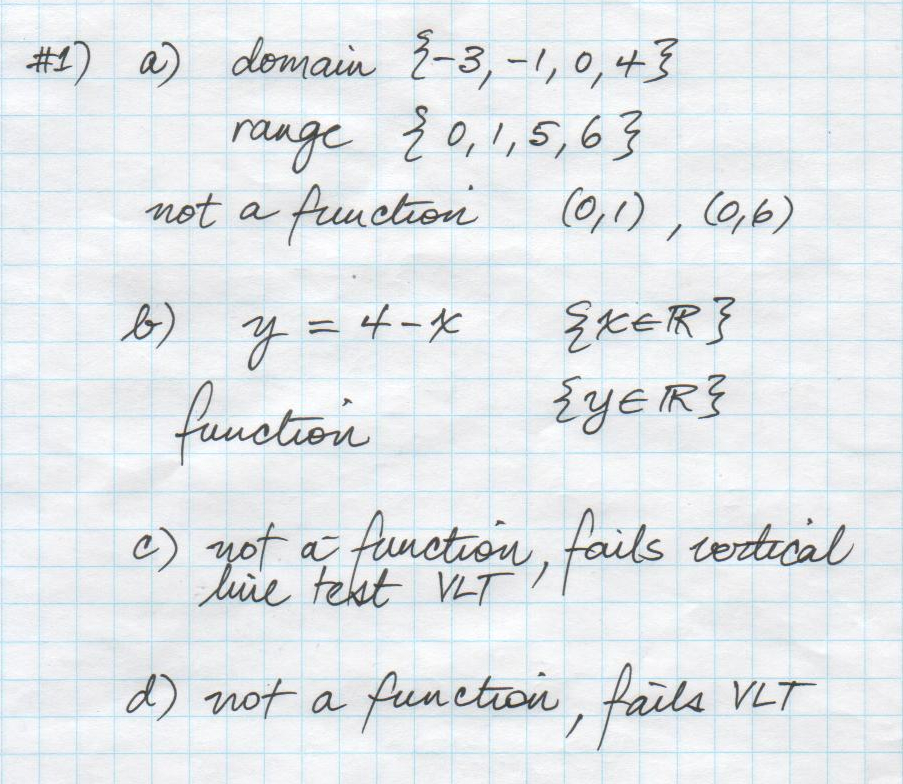 #1) a) domain {-3, -1, 0, 4}
range {0, 1, 5, 6}
not a function (0,1), (0,6)
b) y = 4-x {x∈ℝ}
{y∈ℝ}
function
c) not a function, fails vertical
line test VLT
d) not a function, fails VLT